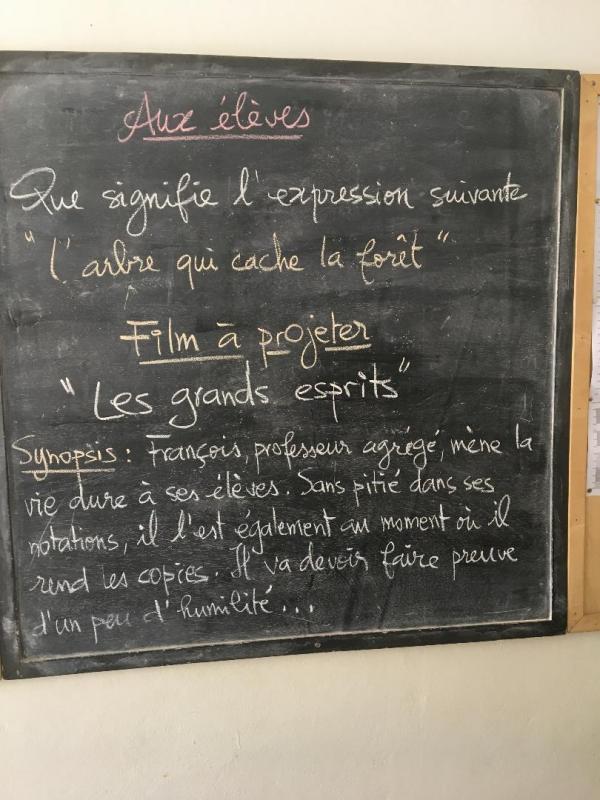 Aux élèves
Que signifie l'expression suivante
"l'arbre qui cache la forêt"
Film à projeter
"Les grands esprits"
Synopsis : François, professeur agrégé, mène la
vie dure à ses élèves. Sans pitié dans ses
notations, il l'est également au moment où il
rend les copies. Il va devoir faire preuve
d'un peu d'humilité...